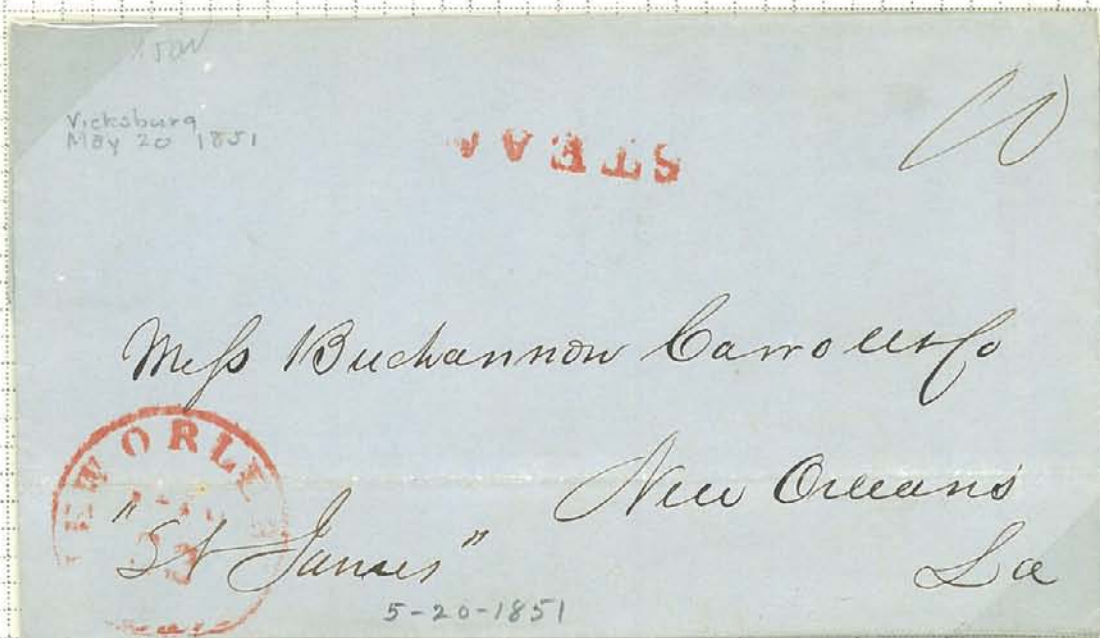 Vicksburg
May 20 1851
STEAM
10
Mess Buchannon Carroll & Co
New Orleans
La
NEW ORLE
"St James"
5-20-1851